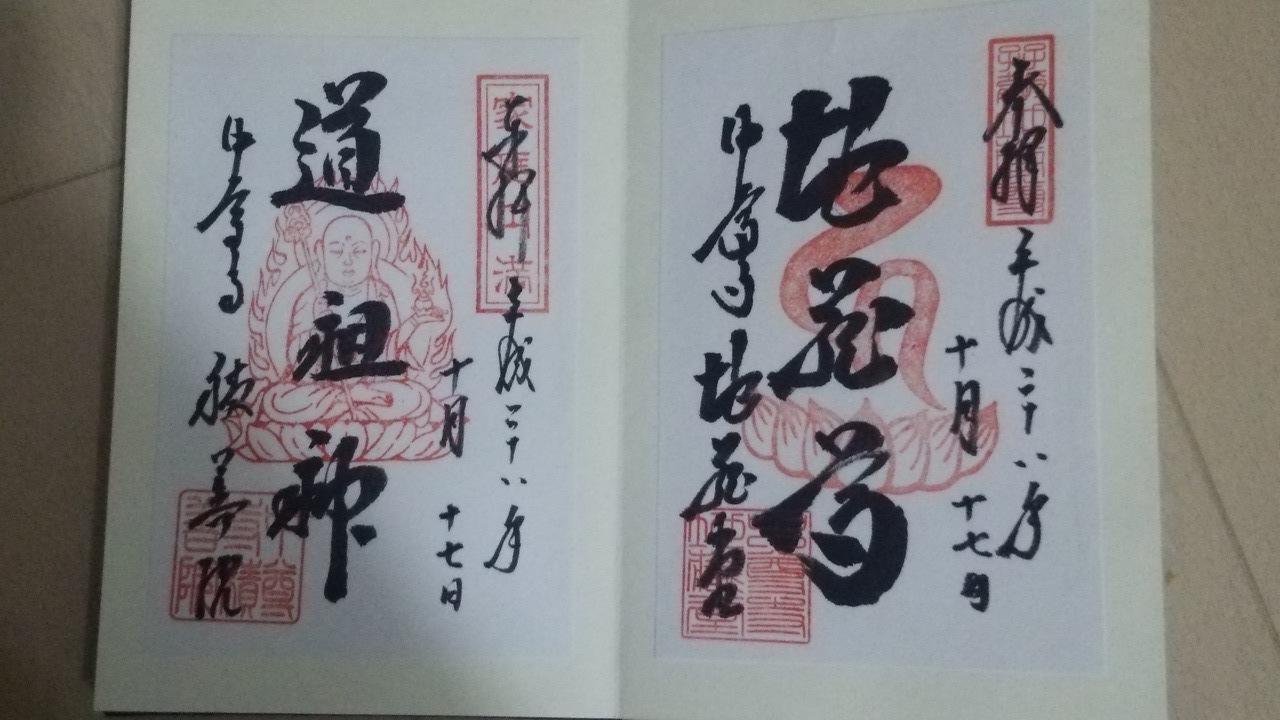 奉拝
平成二十八年
十月十七日
地蔵尊
中尊寺 地蔵堂
奉拝
平成二十八年
十月十七日
道祖神
中尊寺 積善院